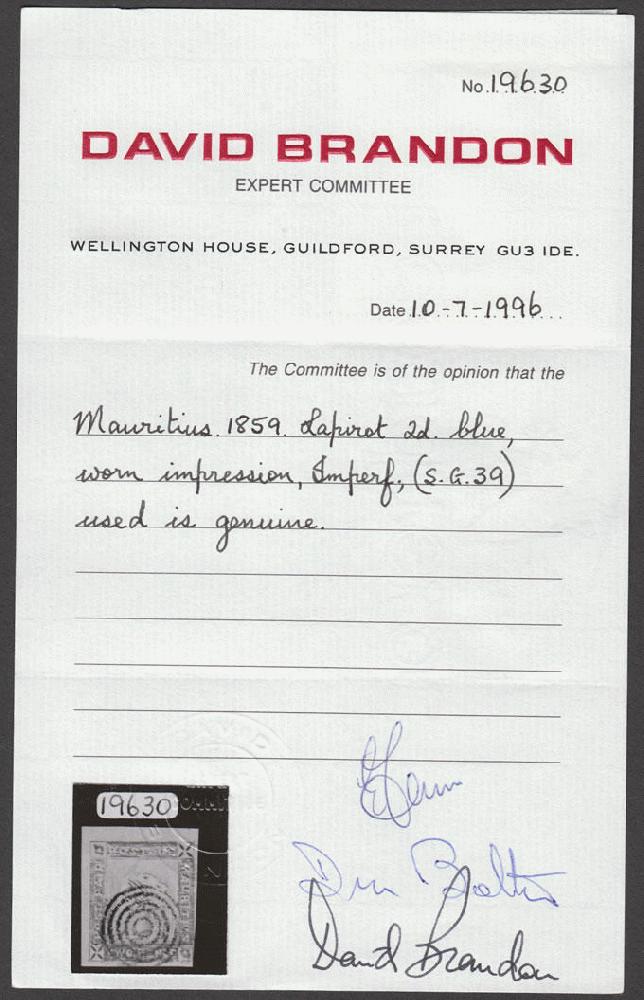 No. 19630
DAVID BRANDON
EXPERT COMMITTEE
WELLINGTON HOUSE, GUILDFORD, SURREY GU3 IDE.
Date 10-7-1996
The Committee is of the opinion that the
Mauritius 1859. Lapirot 2d. blue,
worn impression, Imperf, (S.G.39)
used is genuine.
19630
David Brandon